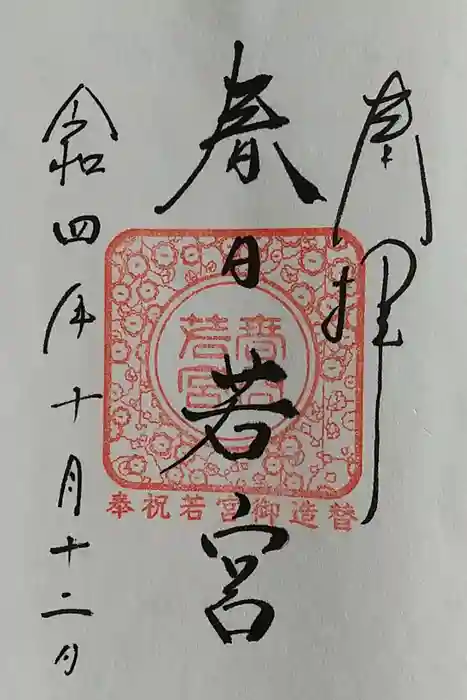 奉拝
春日若宮
春日
若宮
奉祝若宮御造替
令和四年十月十二日